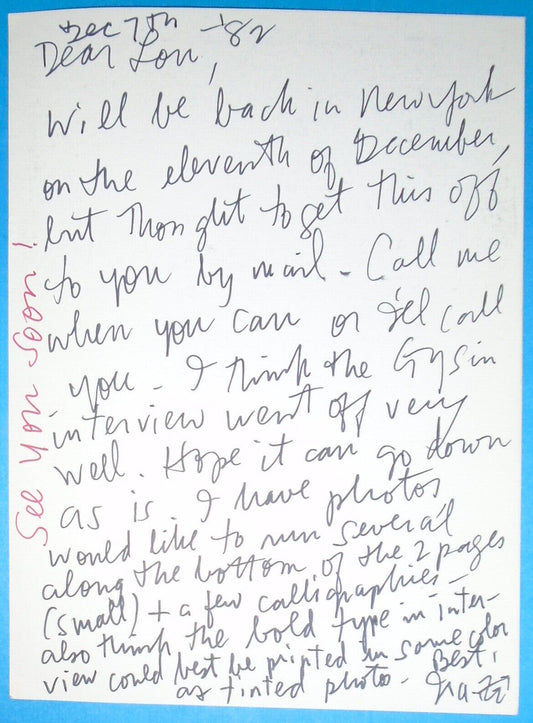 Dec 7th -'82
Dear Lou,
Will be back in New York
on the eleventh of December,
but thought to get this off
to you by mail - Call me
when you can or I'll call
you - I think the Gysin
interview went off very
well. Hope it can go down
as is. I have photos
would like to run several
along the bottom of the 2 pages
(small) + a few calligraphies -
also think the bold type in inter-
view could best be printed in same color
as tinted photo - Best,
See You Soon!